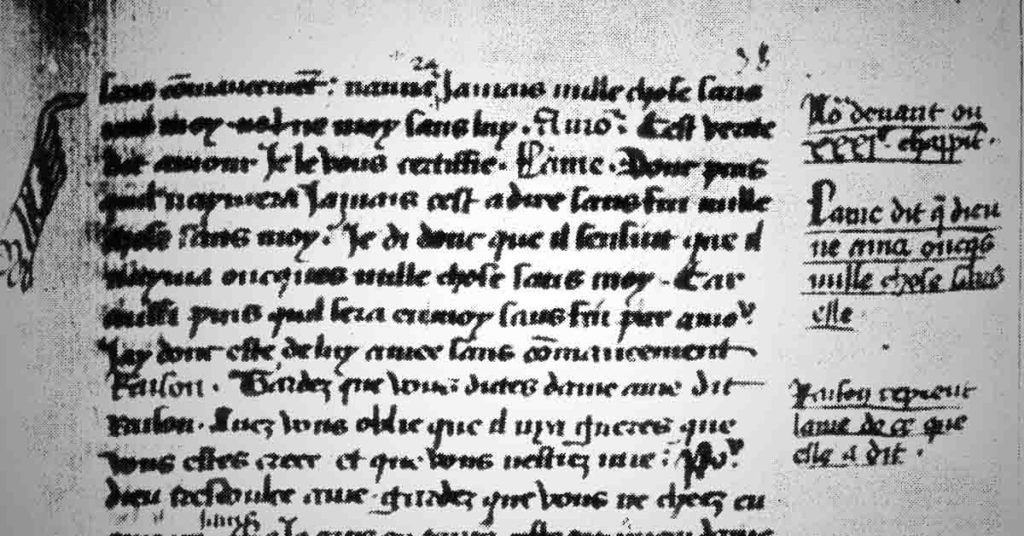 sans cōmancement : nanne Jamais nulle chose sans
moy ne moy sans luy . Amo᷑ : Cest verite
dit amour Je le vous certiffie . Lame . Donc puis
quil naymera Jamais cest a dire sans fin nulle
chose sans moy : Je di donc que il sensuit que il
nayma oncques nulle chose sans moy . Car
aussi puis quil sera en moy sans fin par amo᷑
Jay donc este de luy amee sans cōmancement
Raison . Gardez que vous dictes dame ame dit
raison . Auez vous oblie que il nya gueres que
vous estes creee et que vous nestiez mie :
dieu tresdoulce ame gardez que vous ne cheez en
24
Nō deuant ou
xxxi chappit .
Lame dit q̄ dieu
ne ama oncqs
nulle chose sans
elle
Raison reprent
lame de ce que
elle a dit .